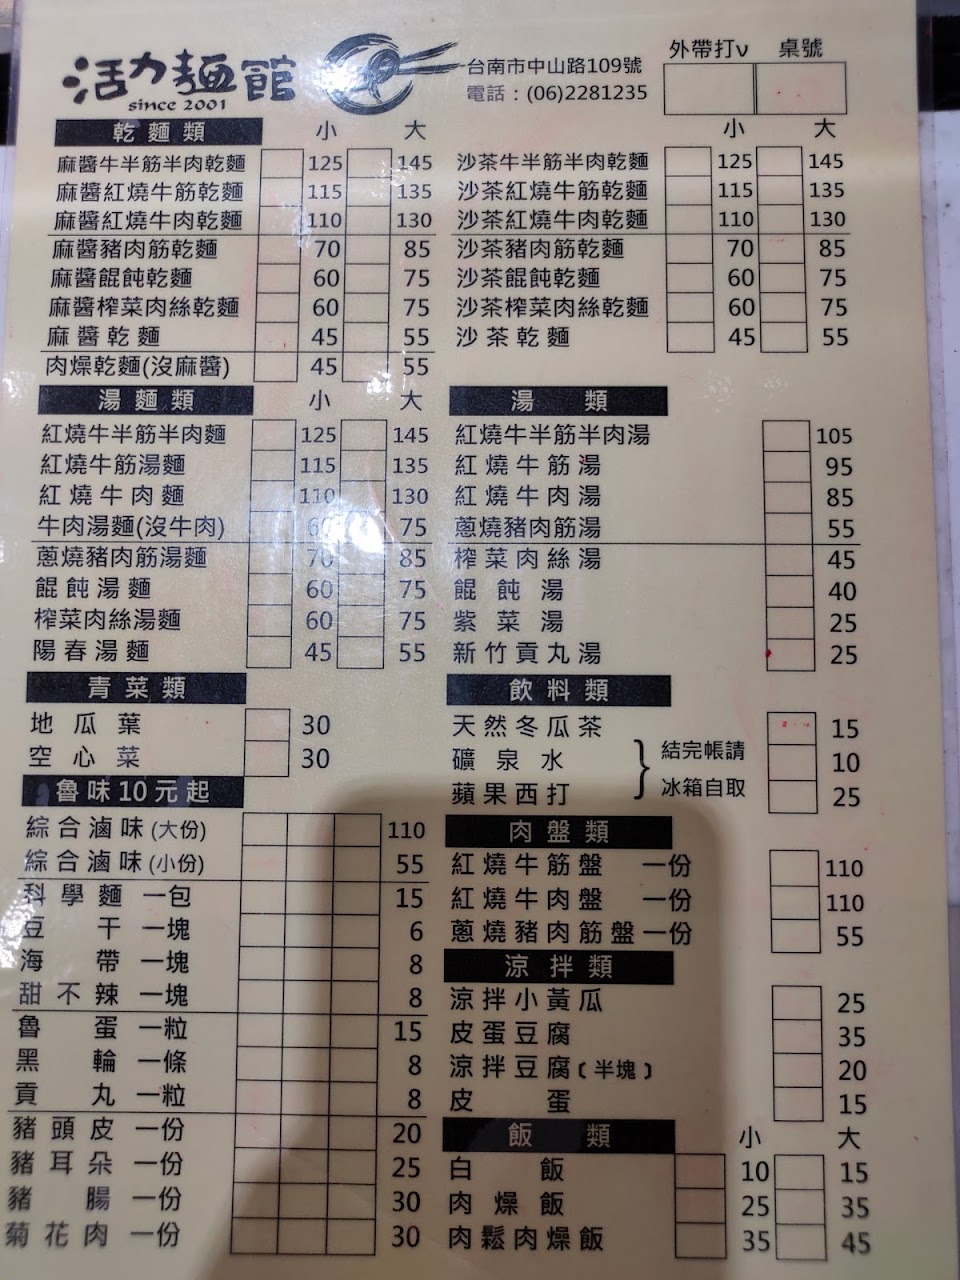 活力麵館
since 2001
台南市中山路109號
電話：(06)2281235
外帶打v 桌號
乾麵類 小 大
麻醬牛半筋半肉乾麵 125 145
麻醬紅燒牛筋乾麵 115 135
麻醬紅燒牛肉乾麵 110 130
麻醬豬肉筋乾麵 70 85
麻醬餛飩乾麵 60 75
麻醬榨菜肉絲乾麵 60 75
麻醬乾麵 45 55
肉燥乾麵(沒麻醬) 45 55
小 大
沙茶牛半筋半肉乾麵 125 145
沙茶紅燒牛筋乾麵 115 135
沙茶紅燒牛肉乾麵 110 130
沙茶豬肉筋乾麵 70 85
沙茶餛飩乾麵 60 75
沙茶榨菜肉絲乾麵 60 75
沙茶乾麵 45 55
湯麵類 小 大
紅燒牛半筋半肉麵 125 145
紅燒牛筋湯麵 115 135
紅燒牛肉麵 110 130
牛肉湯麵(沒牛肉) 60 75
蔥燒豬肉筋湯麵 70 85
餛飩湯麵 60 75
榨菜肉絲湯麵 60 75
陽春湯麵 45 55
湯類
紅燒牛半筋半肉湯 105
紅燒牛筋湯 95
紅燒牛肉湯 85
蔥燒豬肉筋湯 55
榨菜肉絲湯 45
餛飩湯 40
紫菜湯 25
新竹貢丸湯 25
青菜類
地瓜葉 30
空心菜 30
魯味10元起
綜合滷味(大份) 110
綜合滷味(小份) 55
科學麵 一包 15
豆干 一塊 6
海帶 一塊 8
甜不辣 一塊 8
魯蛋 一粒 15
黑輪 一條 8
貢丸 一粒 8
豬頭皮 一份 20
豬耳朵 一份 25
豬腸 一份 30
菊花肉 一份 30
飲料類
天然冬瓜茶 15
礦泉水 10
蘋果西打 25
結完帳請
冰箱自取
肉盤類
紅燒牛筋盤 一份 110
紅燒牛肉盤 一份 110
蔥燒豬肉筋盤 一份 55
涼拌類
涼拌小黃瓜 25
皮蛋豆腐 35
涼拌豆腐〔半塊〕 20
皮蛋 15
飯類 小 大
白飯 10 15
肉燥飯 25 35
肉鬆肉燥飯 35 45